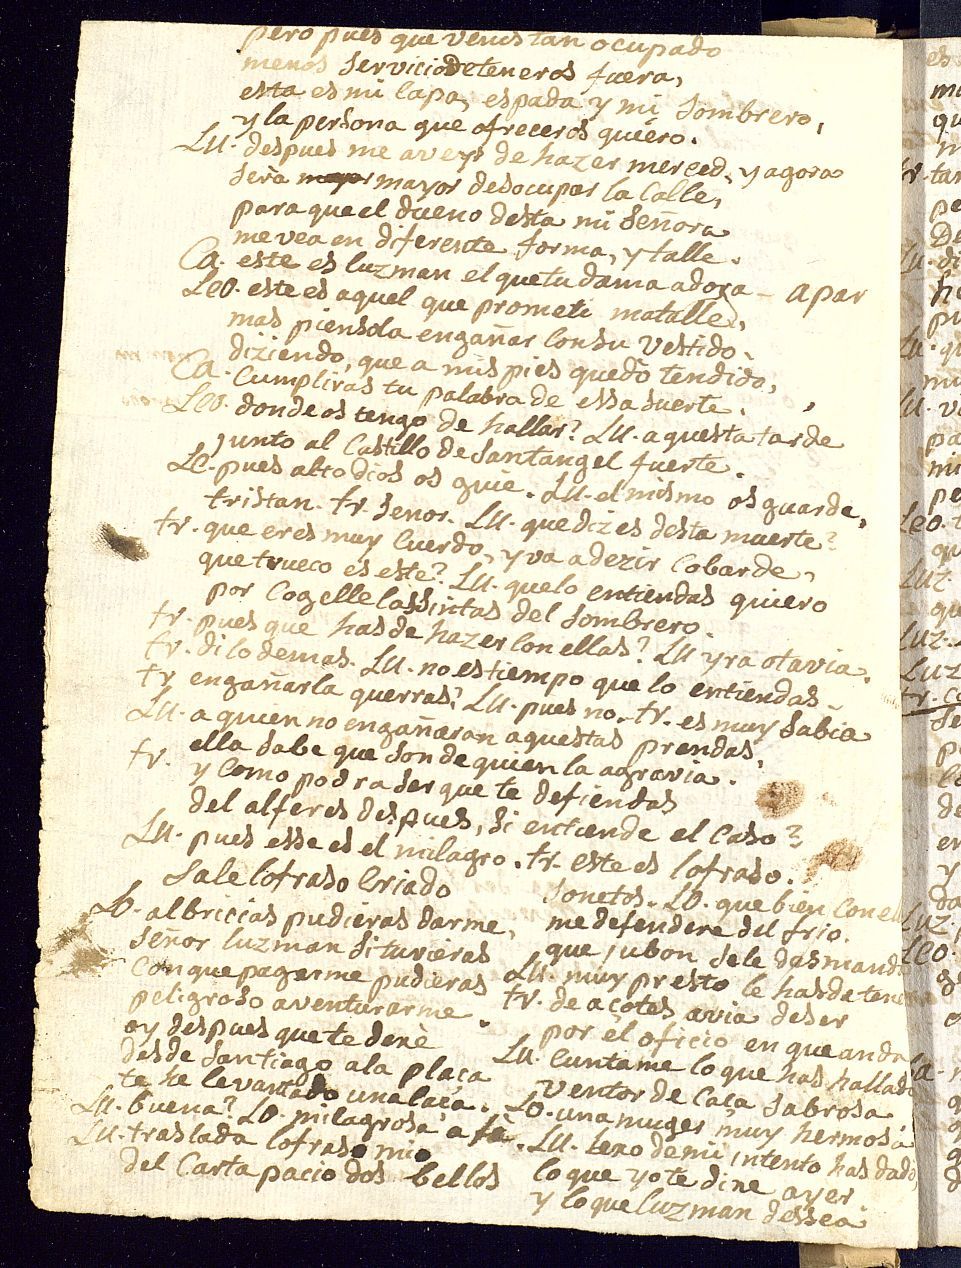 pero pues que venis tan ocupado
menos servicio deteneros fuera,
esta es mi capa, espada y mi sombrero,
y la persona que ofreceros quiero.
Lu. despues me aveys de hazer merced, y agora
sera mayor desocupar la calle,
para que el dueno desta mi señora
me vea en diferente forma, y talle.
Ca. este es luzman el que tu dama adora - apar
Leo. este es aquel que prometi matalle,
mas piensola engañar con su vestido.
diziendo, que a mis pies quedò tendido,
Ca. Cumpliras tu palabra de essa suerte.
Leo. donde os tengo de hallar? Lu. aquesta tarde
junto al Castillo de Santangel fuerte.
Le. pues alto dios os guie. Lu. el mismo os guarde,
tristan. tr. señor. Lu. que dizes desta muerte?
tr. que eres muy cuerdo, y va a dezir cobarde,
que trueco es este? Lu. que lo entiendas quiero
por cogelle las sintas del sombrero.
tr. pues que has de hazer con ellas? Lu yra otavia.
tr. di lo demas. Lu. no es tiempo que lo entiendas.
tr engañarla querras? Lu. pues no. tr. es muy sabia
Lu. a quien no engañaran aquestas prendas,
ella sabe que son de quien la agravia.
tr. y como podra ser que te defiendas
del alferes despues, si entiende el caso?
Lu. pues esse es el milagro. tr. este es lofraso.
Sale lofraso criado
Lo. albricias pudieras darme,
señor luzman si tuvieras
con que pagarme pudieras
peligroso aventurarme.
oy despues que te dexè
desde Santiago a la plaça
te he levantado una caça.
Lu. buena? Lo. milagrosa a fè.
Lu. traslada lofraso mio
del Cartapacio dos bellos
sonetos. Lo. que bien con el
me defendere del frio.
que jubon se le desmand
Lu. muy presto le has de tene
tr. de açotes avia de ser
por el oficio en que anda
Lu. cuntame lo que has hallad
ventor de caça sabrosa
Lo. una muger muy hermosa
Lu. lexo de mi intento has dado
lo que yo te dixe ayer
y lo que luzman dessea